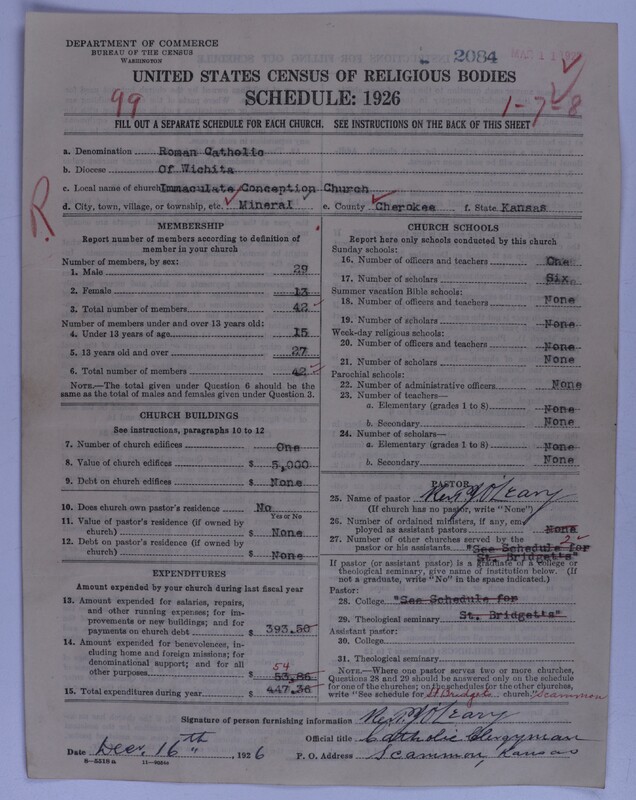 DEPARTMENT OF COMMERCE
BUREAU OF THE CENSUS
WASHINGTON
2084
MAR 11
UNITED STATES CENSUS OF RELIGIOUS BODIES
SCHEDULE: 1926
99
1-7-8
FILL OUT A SEPARATE SCHEDULE FOR EACH CHURCH. SEE INSTRUCTIONS ON THE BACK OF THIS SHEET
R
a. Denomination Roman Catholic
b. Diocese Of Wichita
c. Local name of church Immaculate Conception Church
d. City, town, village, or township, etc. Mineral e. County Cherokee f. State Kansas
MEMBERSHIP
Report number of members according to definition of member in your church
Number of members, by sex:
1. Male 29
2. Female 13
3. Total number of members 42
Number of members under and over 13 years old:
4. Under 13 years of age 15
5. 13 years old and over 27
6. Total number of members 42
NOTE.—The total given under Question 6 should be the same as the total of males and females given under Question 3.
CHURCH BUILDINGS
See instructions, paragraphs 10 to 12
7. Number of church edifices One
8. Value of church edifices $ 5,000
9. Debt on church edifices $ None
10. Does church own pastor's residence? No
Yes or No
11. Value of pastor's residence (if owned by church) $ None
12. Debt on pastor's residence (if owned by church) $ None
EXPENDITURES
Amount expended by your church during last fiscal year
13. Amount expended for salaries, repairs, and other running expenses; for improvements or new buildings; and for payments on church debt $ 393.50
14. Amount expended for benevolences, including home and foreign missions; for denominational support; and for all other purposes $ 53,86
54
15. Total expenditures during year $ 447.36
CHURCH SCHOOLS
Report here only schools conducted by this church
Sunday schools:
16. Number of officers and teachers One
17. Number of scholars Six
Summer vacation Bible schools:
18. Number of officers and teachers None
19. Number of scholars None
Week-day religious schools:
20. Number of officers and teachers None
21. Number of scholars None
Parochial schools:
22. Number of administrative officers None
23. Number of teachers—
a. Elementary (grades 1 to 8) None
b. Secondary None
24. Number of scholars—
a. Elementary (grades 1 to 8) None
b. Secondary None
PASTOR
25. Name of pastor Rev. P. J. O'Leary
(If church has no pastor, write "None")
26. Number of ordained ministers, if any, employed as assistant pastors None
27. Number of other churches served by the pastor or his assistants "See Schedule for St. Bridgetts"
2
If pastor (or assistant pastor) is a graduate of a college or theological seminary, give name of institution below. (If not a graduate, write "No" in the space indicated.)
Pastor:
28. College "See Schedule for
29. Theological seminary St. Bridgetts"
Assistant pastor:
30. College
31. Theological seminary
NOTE.—Where one pastor serves two or more churches, Questions 28 and 29 should be answered only on the schedule for one of the churches; on the schedules for the other churches, write "See schedule for St Bridgets church," Scammon
Signature of person furnishing information Rev. P. J. O'Leary
Official title Catholic Clergyman
Date Dec. 16th, 1926 P. O. Address Scammon, Kansas